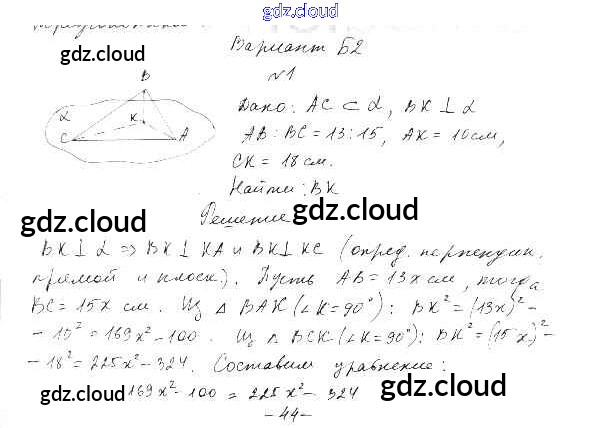 gdz.cloud
Вариант Б2
gdz.cloud
gdz.cloud
№1
B
α
K
C
A
Дано: AC ⊂ α, BK ⊥ α
AB : BC = 13 : 15, AK = 10 см,
CK = 18 см.
Найти: BK
gdz.cloud
gdz.cloud
Решение
BK ⊥ α => BK ⊥ KA и BK ⊥ KC (опред. перпендик.
прямой и плоск.). Пусть AB = 13x см, тогда
BC = 15x см. Из △ BAK (∠K = 90°): BK² = (13x)² -
gdz.cloud
gdz.cloud
- 10² = 169x² - 100. Из △ BCK (∠K = 90°): BK² = (15x)² -
- 18² = 225x² - 324. Составим уравнение:
gdz.cloud
169x² - 100 = 225x² - 324
gdz.cloud
- 44 -